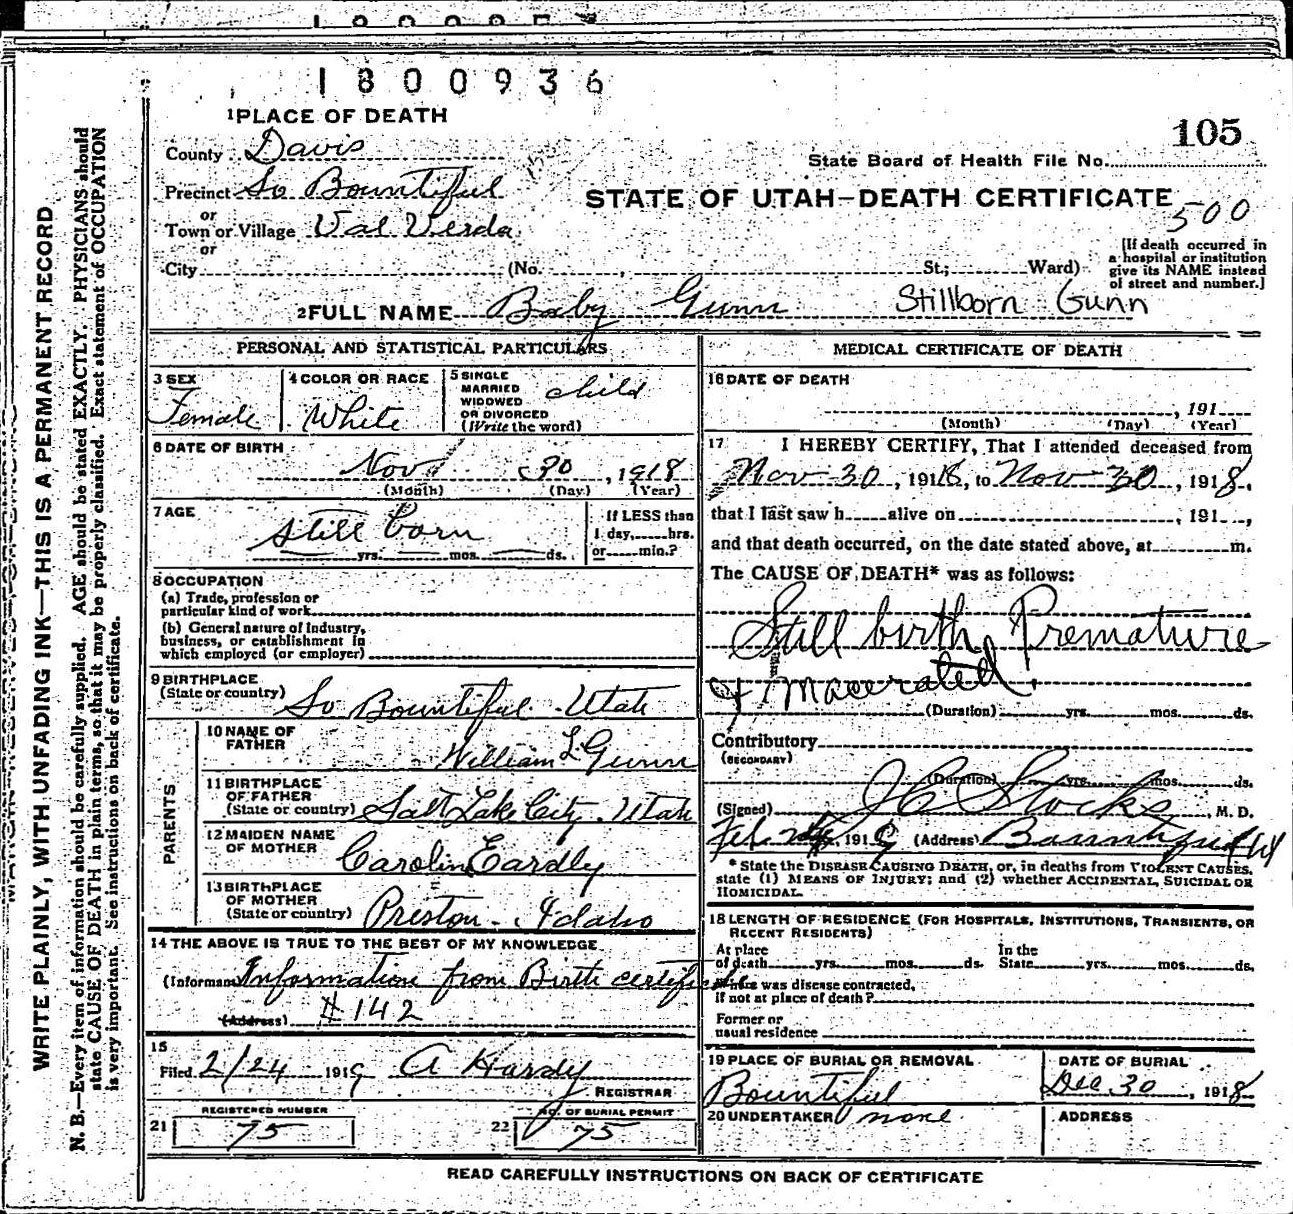 1800936
1 PLACE OF DEATH
105
County Davis
State Board of Health File No.
Precinct So Bountiful
STATE OF UTAH—DEATH CERTIFICATE
or
500
Town or Village Val Verda
or
City (No. , St.; Ward)
[If death occurred in
a hospital or institution
give its NAME instead
of street and number.]
2 FULL NAME Baby Gunn Stillborn Gunn
PERSONAL AND STATISTICAL PARTICULARS
3 SEX
Female
4 COLOR OR RACE
White
5 SINGLE
MARRIED
WIDOWED
OR DIVORCED
(Write the word)
child
6 DATE OF BIRTH
Nov 30, 1918
(Month) (Day) (Year)
7 AGE
Still born
yrs. mos. ds.
If LESS than
1 day, hrs.
or min.?
8 OCCUPATION
(a) Trade, profession or
particular kind of work
(b) General nature of Industry,
business, or establishment in
which employed (or employer)
9 BIRTHPLACE
(State or country) So Bountiful Utah
PARENTS
10 NAME OF
FATHER William L Gunn
11 BIRTHPLACE
OF FATHER
(State or country) Salt Lake City, Utah
12 MAIDEN NAME
OF MOTHER
Carolin Eardly
13 BIRTHPLACE
OF MOTHER
(State or country) Preston Idaho
14 THE ABOVE IS TRUE TO THE BEST OF MY KNOWLEDGE
(Informant Information from Birth certificate
(Address) # 142
15
Filed 2/24 1919 A Hardy
REGISTRAR
REGISTERED NUMBER
21 75
NO. OF BURIAL PERMIT
22 75
MEDICAL CERTIFICATE OF DEATH
16 DATE OF DEATH
, 191
(Month) (Day) (Year)
17 I HEREBY CERTIFY, That I attended deceased from
Nov 30, 1918, to Nov 30, 1918,
that I last saw h alive on , 191 ,
and that death occurred, on the date stated above, at m.
The CAUSE OF DEATH* was as follows:
Still birth Premature
& Macerated.
(Duration) yrs. mos. ds.
Contributory
(SECONDARY)
(Duration) yrs. mos. ds.
(Signed) J C Stocks, M. D.
Feb 1919 (Address) Bountiful
* State the DISEASE CAUSING DEATH, or, in deaths from VIOLENT CAUSES,
state (1) MEANS OF INJURY; and (2) whether ACCIDENTAL, SUICIDAL OR
HOMICIDAL.
18 LENGTH OF RESIDENCE (FOR HOSPITALS, INSTITUTIONS, TRANSIENTS, OR
RECENT RESIDENTS)
At place In the
of death yrs. mos. ds. State yrs. mos. ds.
Where was disease contracted,
if not at place of death?
Former or
usual residence
19 PLACE OF BURIAL OR REMOVAL
Bountiful
DATE OF BURIAL
Dec 30, 1918
20 UNDERTAKER none
ADDRESS
READ CAREFULLY INSTRUCTIONS ON BACK OF CERTIFICATE
WRITE PLAINLY, WITH UNFADING INK—THIS IS A PERMANENT RECORD
N. B.—Every item of information should be carefully supplied. AGE should be stated EXACTLY. PHYSICIANS should
state CAUSE OF DEATH in plain terms, so that it may be properly classified. Exact statement of OCCUPATION
is very important. See instructions on back of certificate.